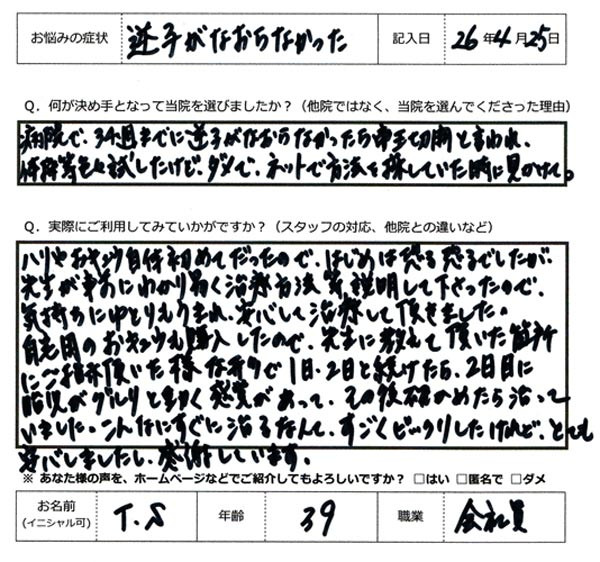 お悩みの症状 逆子がなおらなかった 記入日 26年4月25日
Q．何が決め手となって当院を選びましたか？（他院ではなく、当院を選んでくださった理由）
病院で、34週までに逆子がなおらなかったら帝王切開と言われ、
体操等色々試したけど、ダメで、ネットで方法を探していた時に見かけて。
Q．実際にご利用してみていかがですか？（スタッフの対応、他院との違いなど）
ハリやお灸自体初めてだったので、はじめは恐る恐るでしたが、
先生が事前にわかり易く治療方法等説明して下さったので、
気持ちにゆとりもうまれ、安心して治療して頂きました。
自宅用のお灸も購入したので、先生に教えて頂いた箇所
に 頂いた様な形で1日・2日と続けたら、2日目に
胎児がグルリと動く感覚があって、その後確かめたら治って
いました。こんなにすぐに治るなんて、すごくビックリしたけれど、とても
安心しましたし、感謝しています。
※ あなた様の声を、ホームページなどでご紹介してもよろしいですか？ □はい □匿名で □ダメ
お名前 T.S 年齢 39 職業 会社員
(イニシャル可)